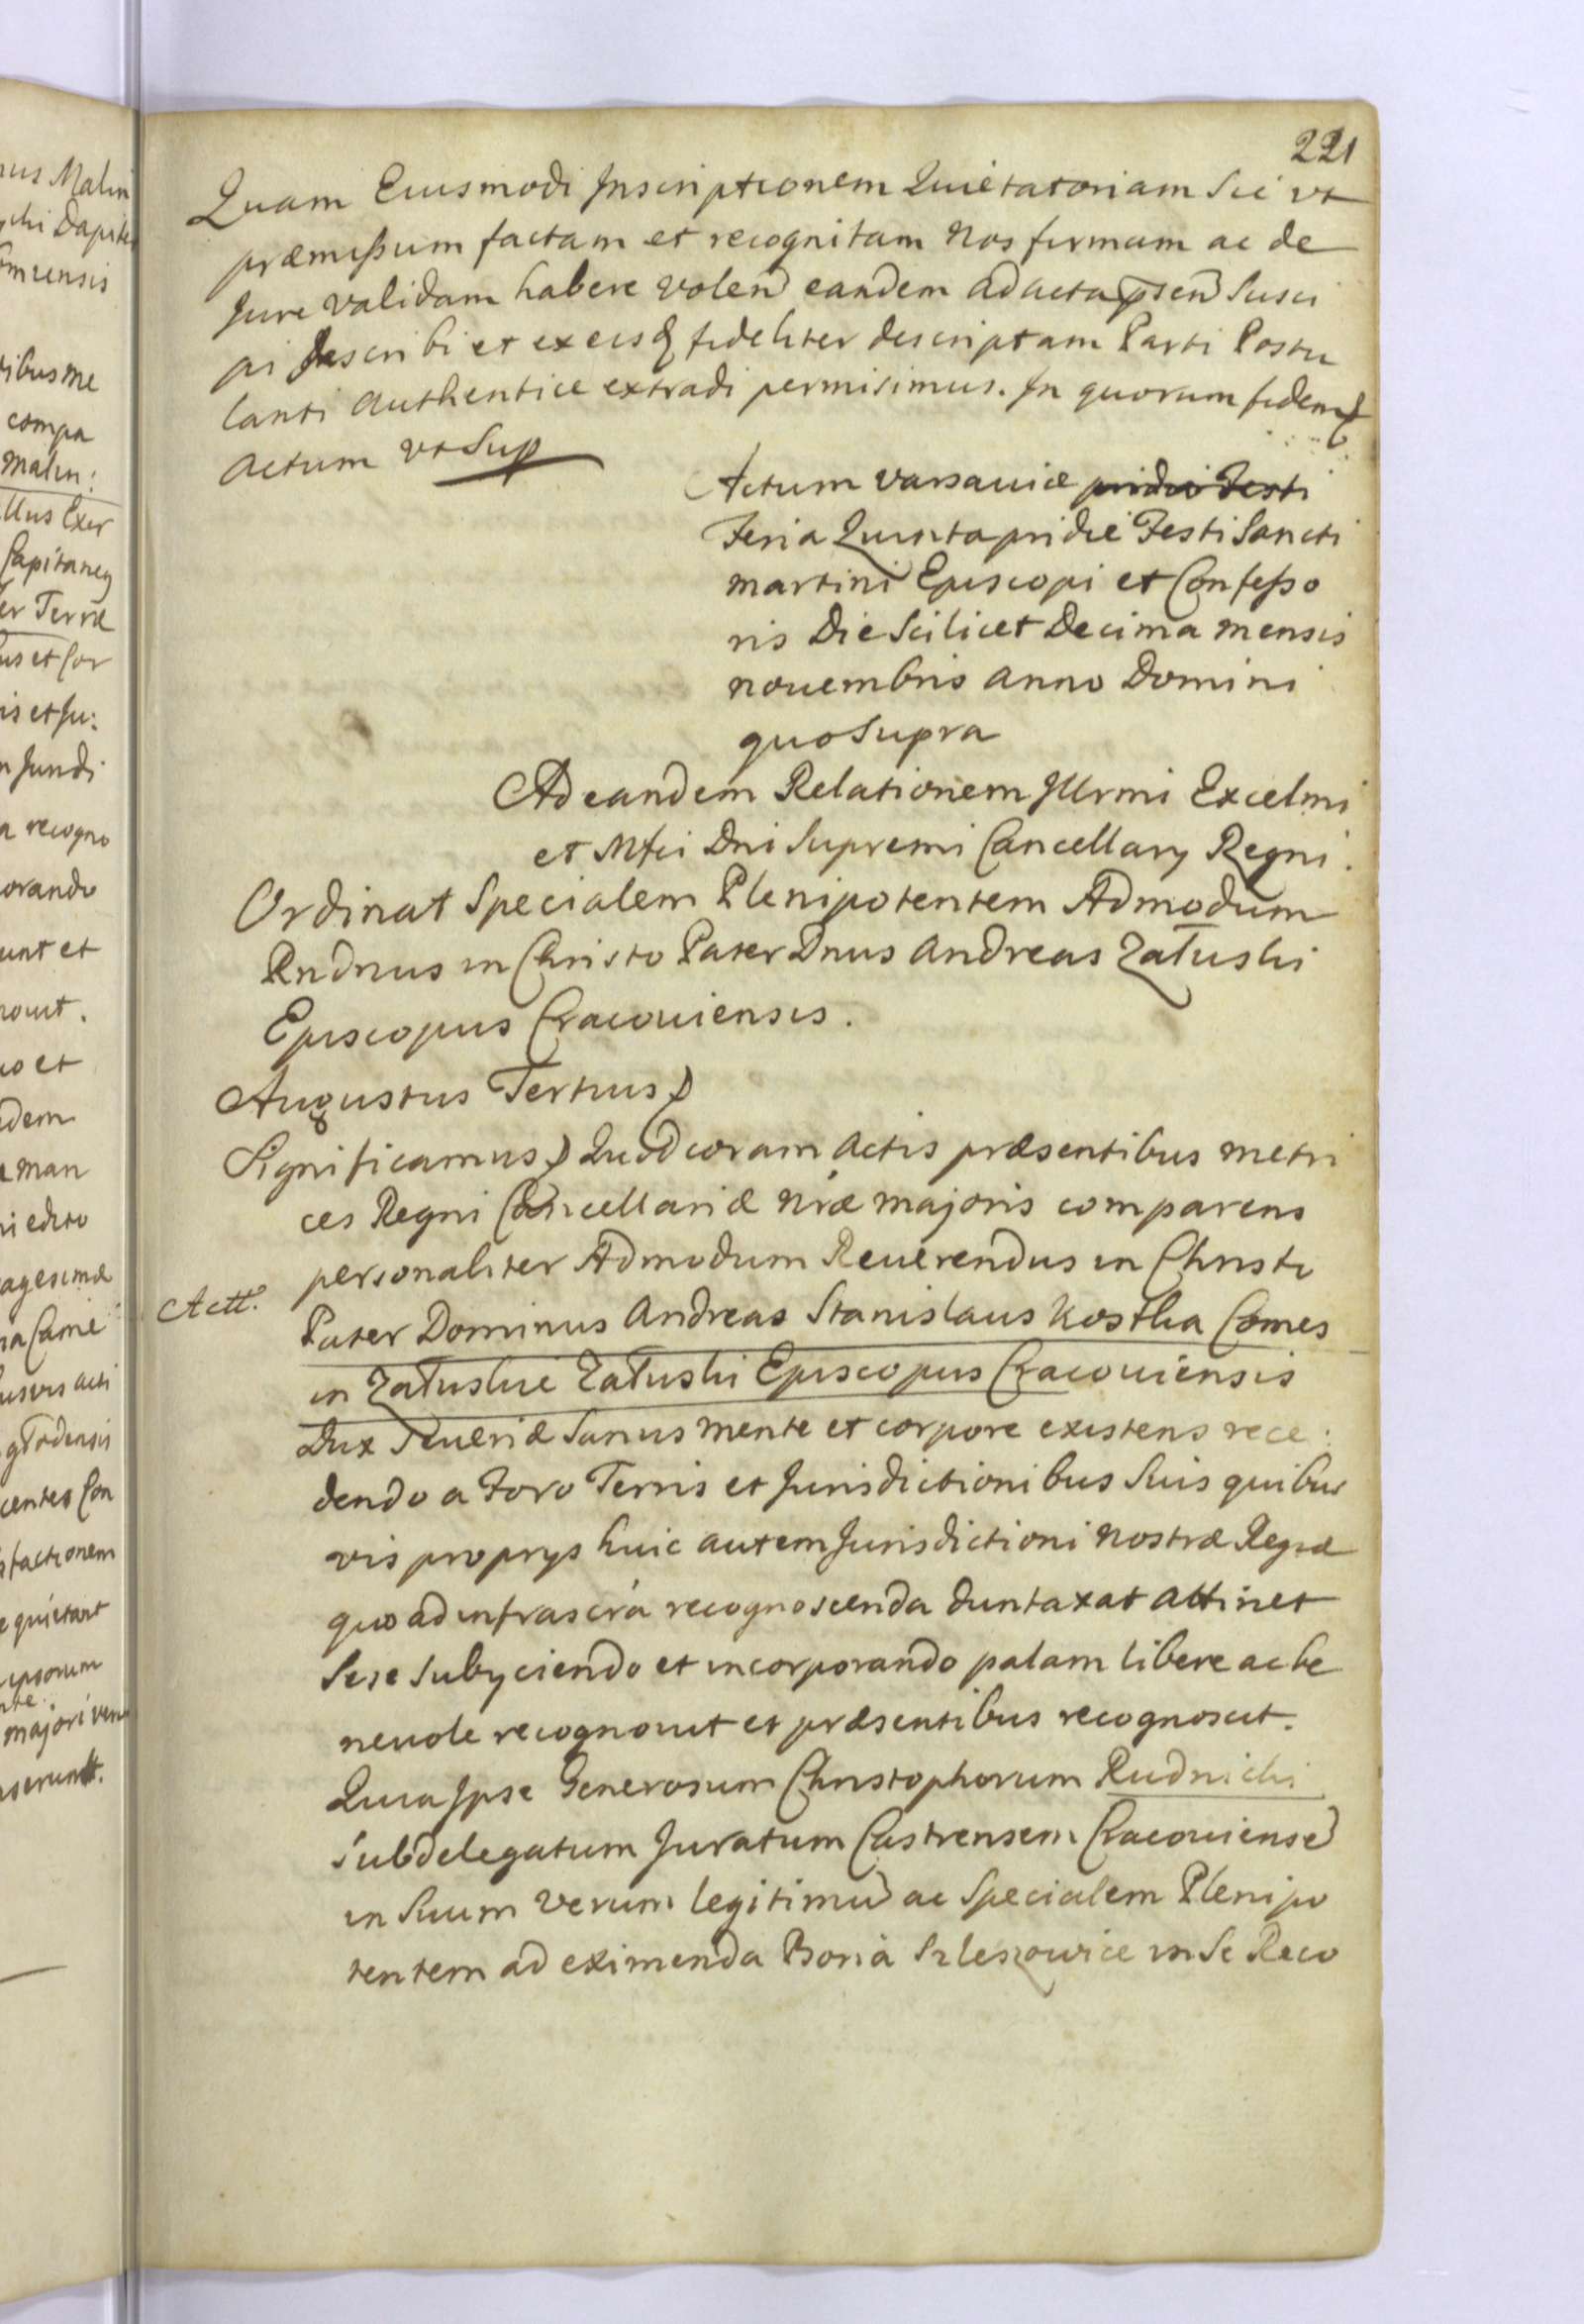 221
Quam Eiusmodi Inscriptionem Quietatoriam Sic vt
præmissum factam et recognitam Nos firmam ac de
Jure validam habere volen eandem ad acta psen Susci
pi Inscribi et ex eisq fideliter descriptam Parti Postu
lanti Authentice extradi permisimus. In quorum fidem
Actum vt Sup
Actum Varsaviæ pridie Festi
Feria Quinta pridie Festi Sancti
Martini Episcopi et Confesso
ris Die Scilicet Decima mensis
Novembris Anno Domini
quo Supra
Ad eandem Relationem Illrmi Excelmi
et Mfci Dni Supremi Cancellarÿ Regni.
Ordinat Specialem Plenipotentem Admodum
Rndnus in Christo Pater Dnus Andreas Załuski
Episcopus Cracoviensis.
Augustus Tertius
Significamus Quod coram Actis præsentibus Metri
ces Regni Cancellariæ Nræ Majoris comparens
personaliter Admodum Reverendus in Christo
Actt.
Pater Dominus Andreas Stanislaus Kostka Comes
in Załuskie Załuski Episcopus Cracoviensis
Dux Severiæ Sanus mente et corpore existens rece:
dendo a Foro Terris et Jurisdictionibus Suis quibus
vis proprÿs huic autem Jurisdictioni Nostræ Regiæ
quo ad infrascra recognoscenda duntaxat attinet
Sese Subÿciendo et incorporando palam libere ac be
nevole recognovit et præsentibus recognoscit.
Quia Ipse Generosum Christophorum Rudnicki
Subdelegatum Juratum Castrensem Cracoviense
in Suum Verum legitimu ac Specialem Plenipo
tentem ad eximenda Bona Szleszowice in Se Reco